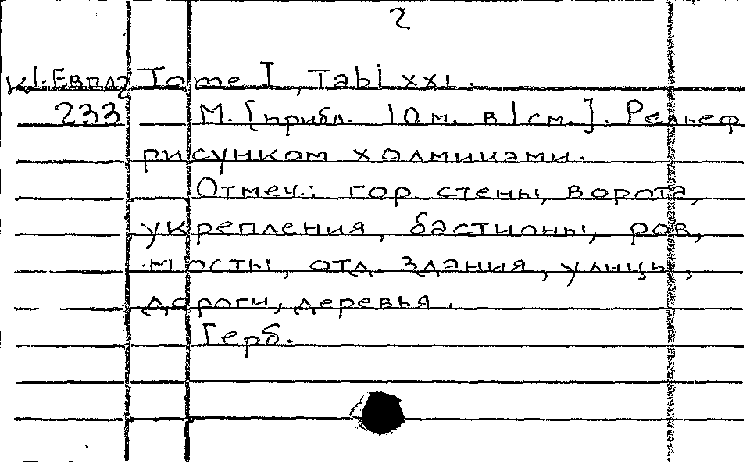 2
К1.Евпл2 Tome I, Tabl XXI.
233 М. [прибл. 10 м. в 1 см.]. Рельеф
рисунком холмиками.
Отмеч.: гор. стены, ворота,
укрепления, бастионы, ров,
мосты, отд. здания, улицы,
дороги, деревья.
Герб.